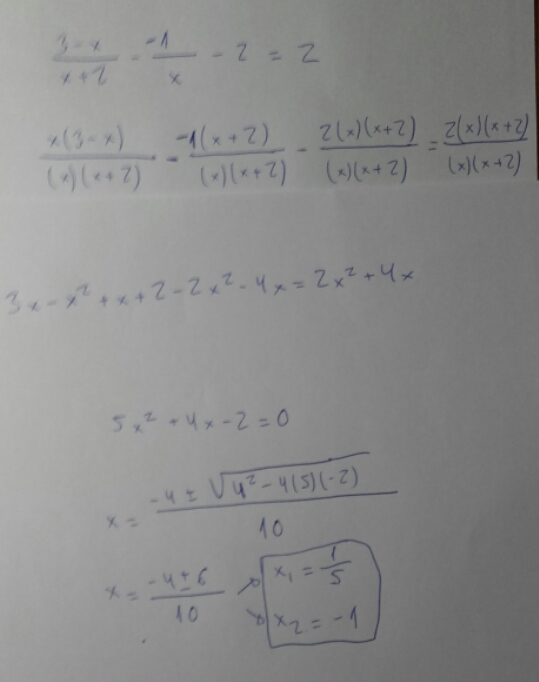 (3-x)/(x+2) - (-1)/x - 2 = 2
x(3-x)/((x)(x+2)) - -1(x+2)/((x)(x+2)) - 2(x)(x+2)/((x)(x+2)) = 2(x)(x+2)/((x)(x+2))
3x - x² + x + 2 - 2x² - 4x = 2x² + 4x
5x² + 4x - 2 = 0
x = (-4 ± √(4² - 4(5)(-2)))/10
x = (-4 ± 6)/10
x₁ = 1/5
x₂ = -1